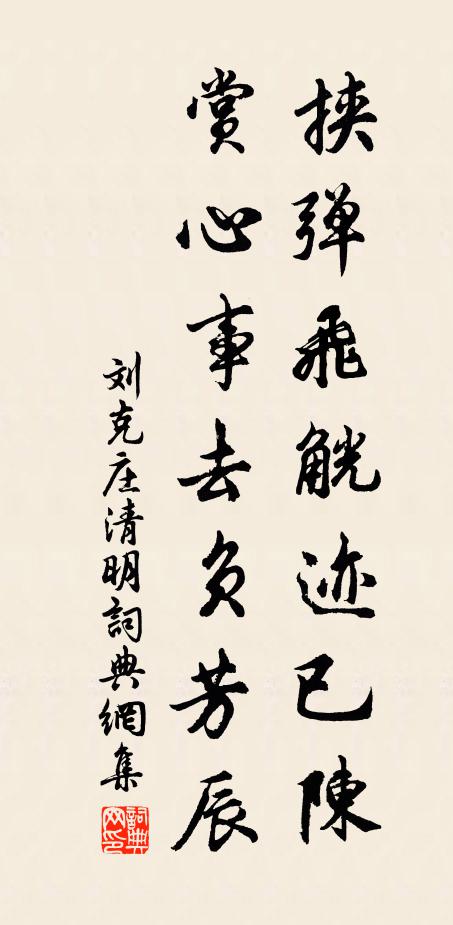 挟弹飛觥迹已陳
赏心事去负芳辰
刘克庄清明詞典網集
詞典网印